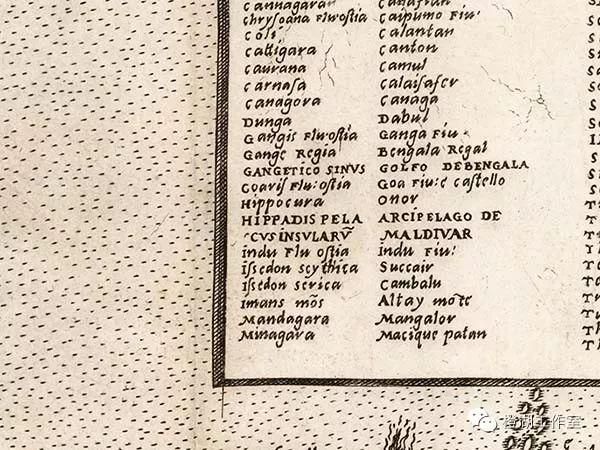 Cannagaran
Chrysoana Flu:ostia Caipumo Fiu:
Coli Calantan
Cattigara Canton
Caurana Camul
Carnasa Calaisafer
Canagora Canaga
Dunga Dabul
Gangis Flu:ostia Ganga Fiu:
Gange Regia Bengala Regal
GANGETICO SINVS GOLFO DEBENGALA
Coaris Flu:ostia Goa Fiu:e castello
Hippocura Onor
HIPPADIS PELA ARCIPELAGO DE
CVS INSVLARV̄ MALDIVAR
Indu Flu ostia Indu Fiu:
Issedon scythica Succair
Issedon serica Cambalu
Imans mōs Altay mōte
Mandagara Mangalor
Minagara Macique patan
工作室